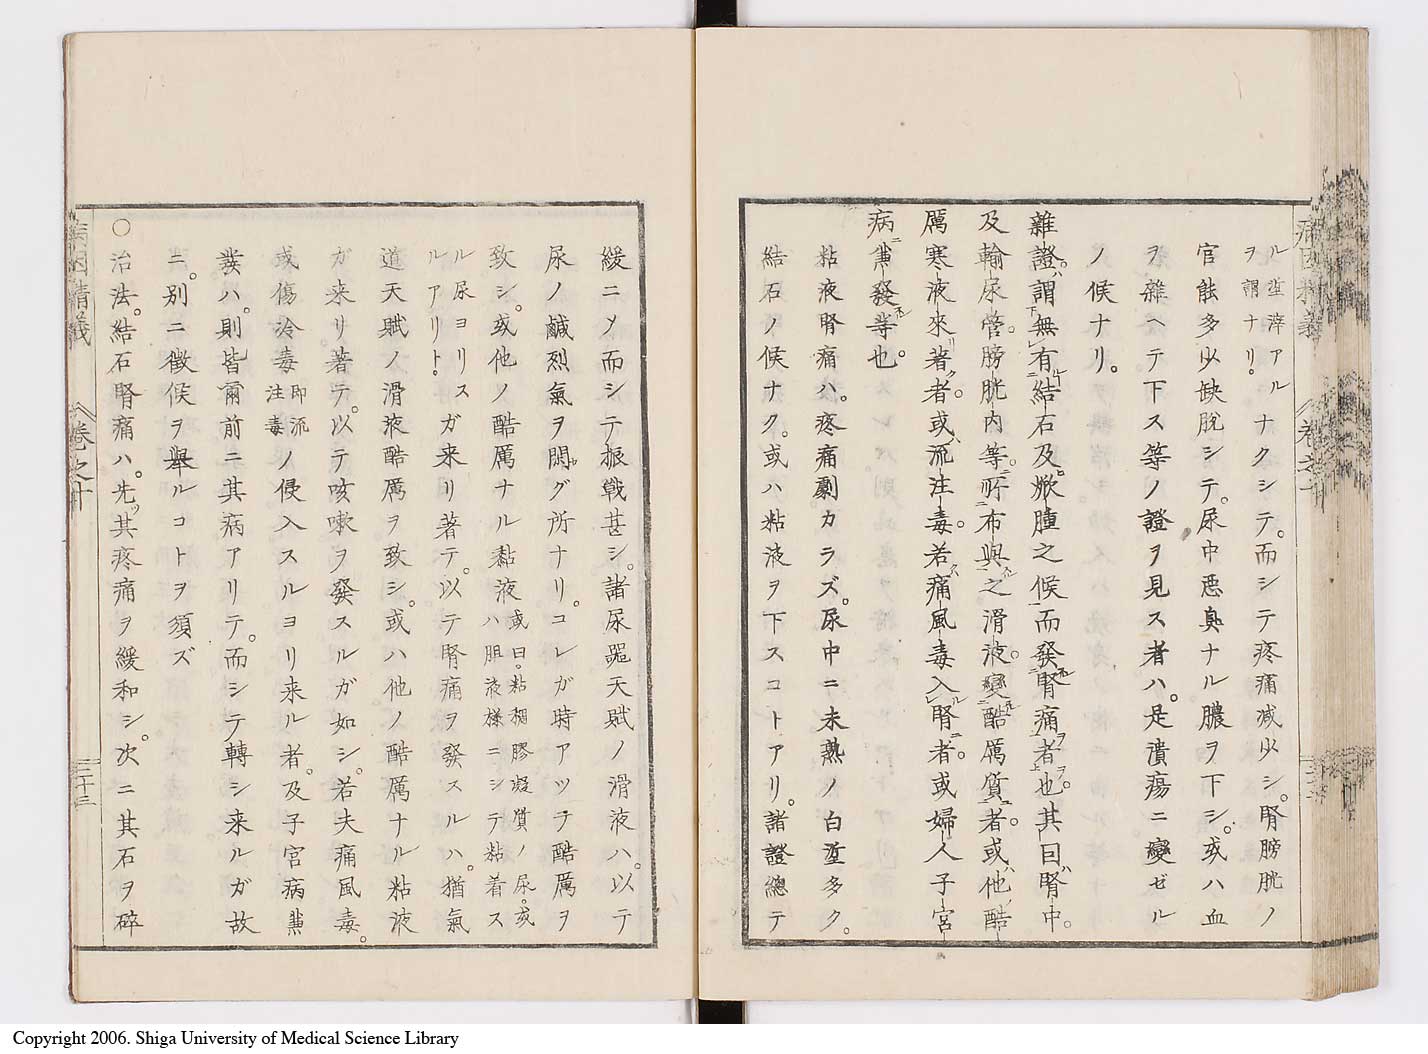 ル堊滓アル
ヲ謂ナリ。
ナクシテ。而シテ疼痛減少シ。腎膀胱ノ
官能多少缺脱シテ。尿中悪臭ナル膿ヲ下シ。或ハ血
ヲ雜ヘテ下ス等ノ證ヲ見ス者ハ。是潰瘍ニ變ゼル
ノ候ナリ。
雜證。謂無有結石及焮腫之候而發腎痛者也。其因腎中。
及輸尿管。膀胱内等。所布與之滑液。變酷厲質者。或他酷
厲寒液來著者。或流注毒。若痛風毒入腎者。或婦人子宮
病兼發等也。
粘液腎痛ハ。疼痛劇カラズ。尿中ニ未熟ノ白堊多ク。
結石ノ候ナク。或ハ粘液ヲ下スコトアリ。諸證總テ
緩ニメ而シテ振戰甚シ。諸尿噐天賦ノ滑液ハ。以テ
尿ノ鹹烈氣ヲ閼グ所ナリ。コレガ時アツテ酷厲ヲ
致シ。或他ノ酷厲ナル黏液
或曰。粘稠膠凝質ノ尿。或
ハ胆液様ニシテ粘着ス
ル尿ヨリス
ルアリト。
ガ来リ著テ。以テ腎痛ヲ發スルハ。猶氣
道天賦ノ滑液酷厲ヲ致シ。或ハ他ノ酷厲ナル粘液
ガ来リ著テ。以テ咳嗽ヲ發スルガ如シ。若夫痛風毒。
或傷冷毒
即流
注毒
ノ侵入スルヨリ来ル者。及子宮病兼
發ハ。則皆爾前ニ其病アリテ。而シテ轉シ来ルガ故
ニ。別ニ徴候ヲ擧ルコトヲ須ズ
○治法。結石腎痛ハ。先ヅ其疼痛ヲ緩和シ。次ニ其石ヲ碎
病因精義 卷之十 二十三
Copyright 2006. Shiga University of Medical Science Library